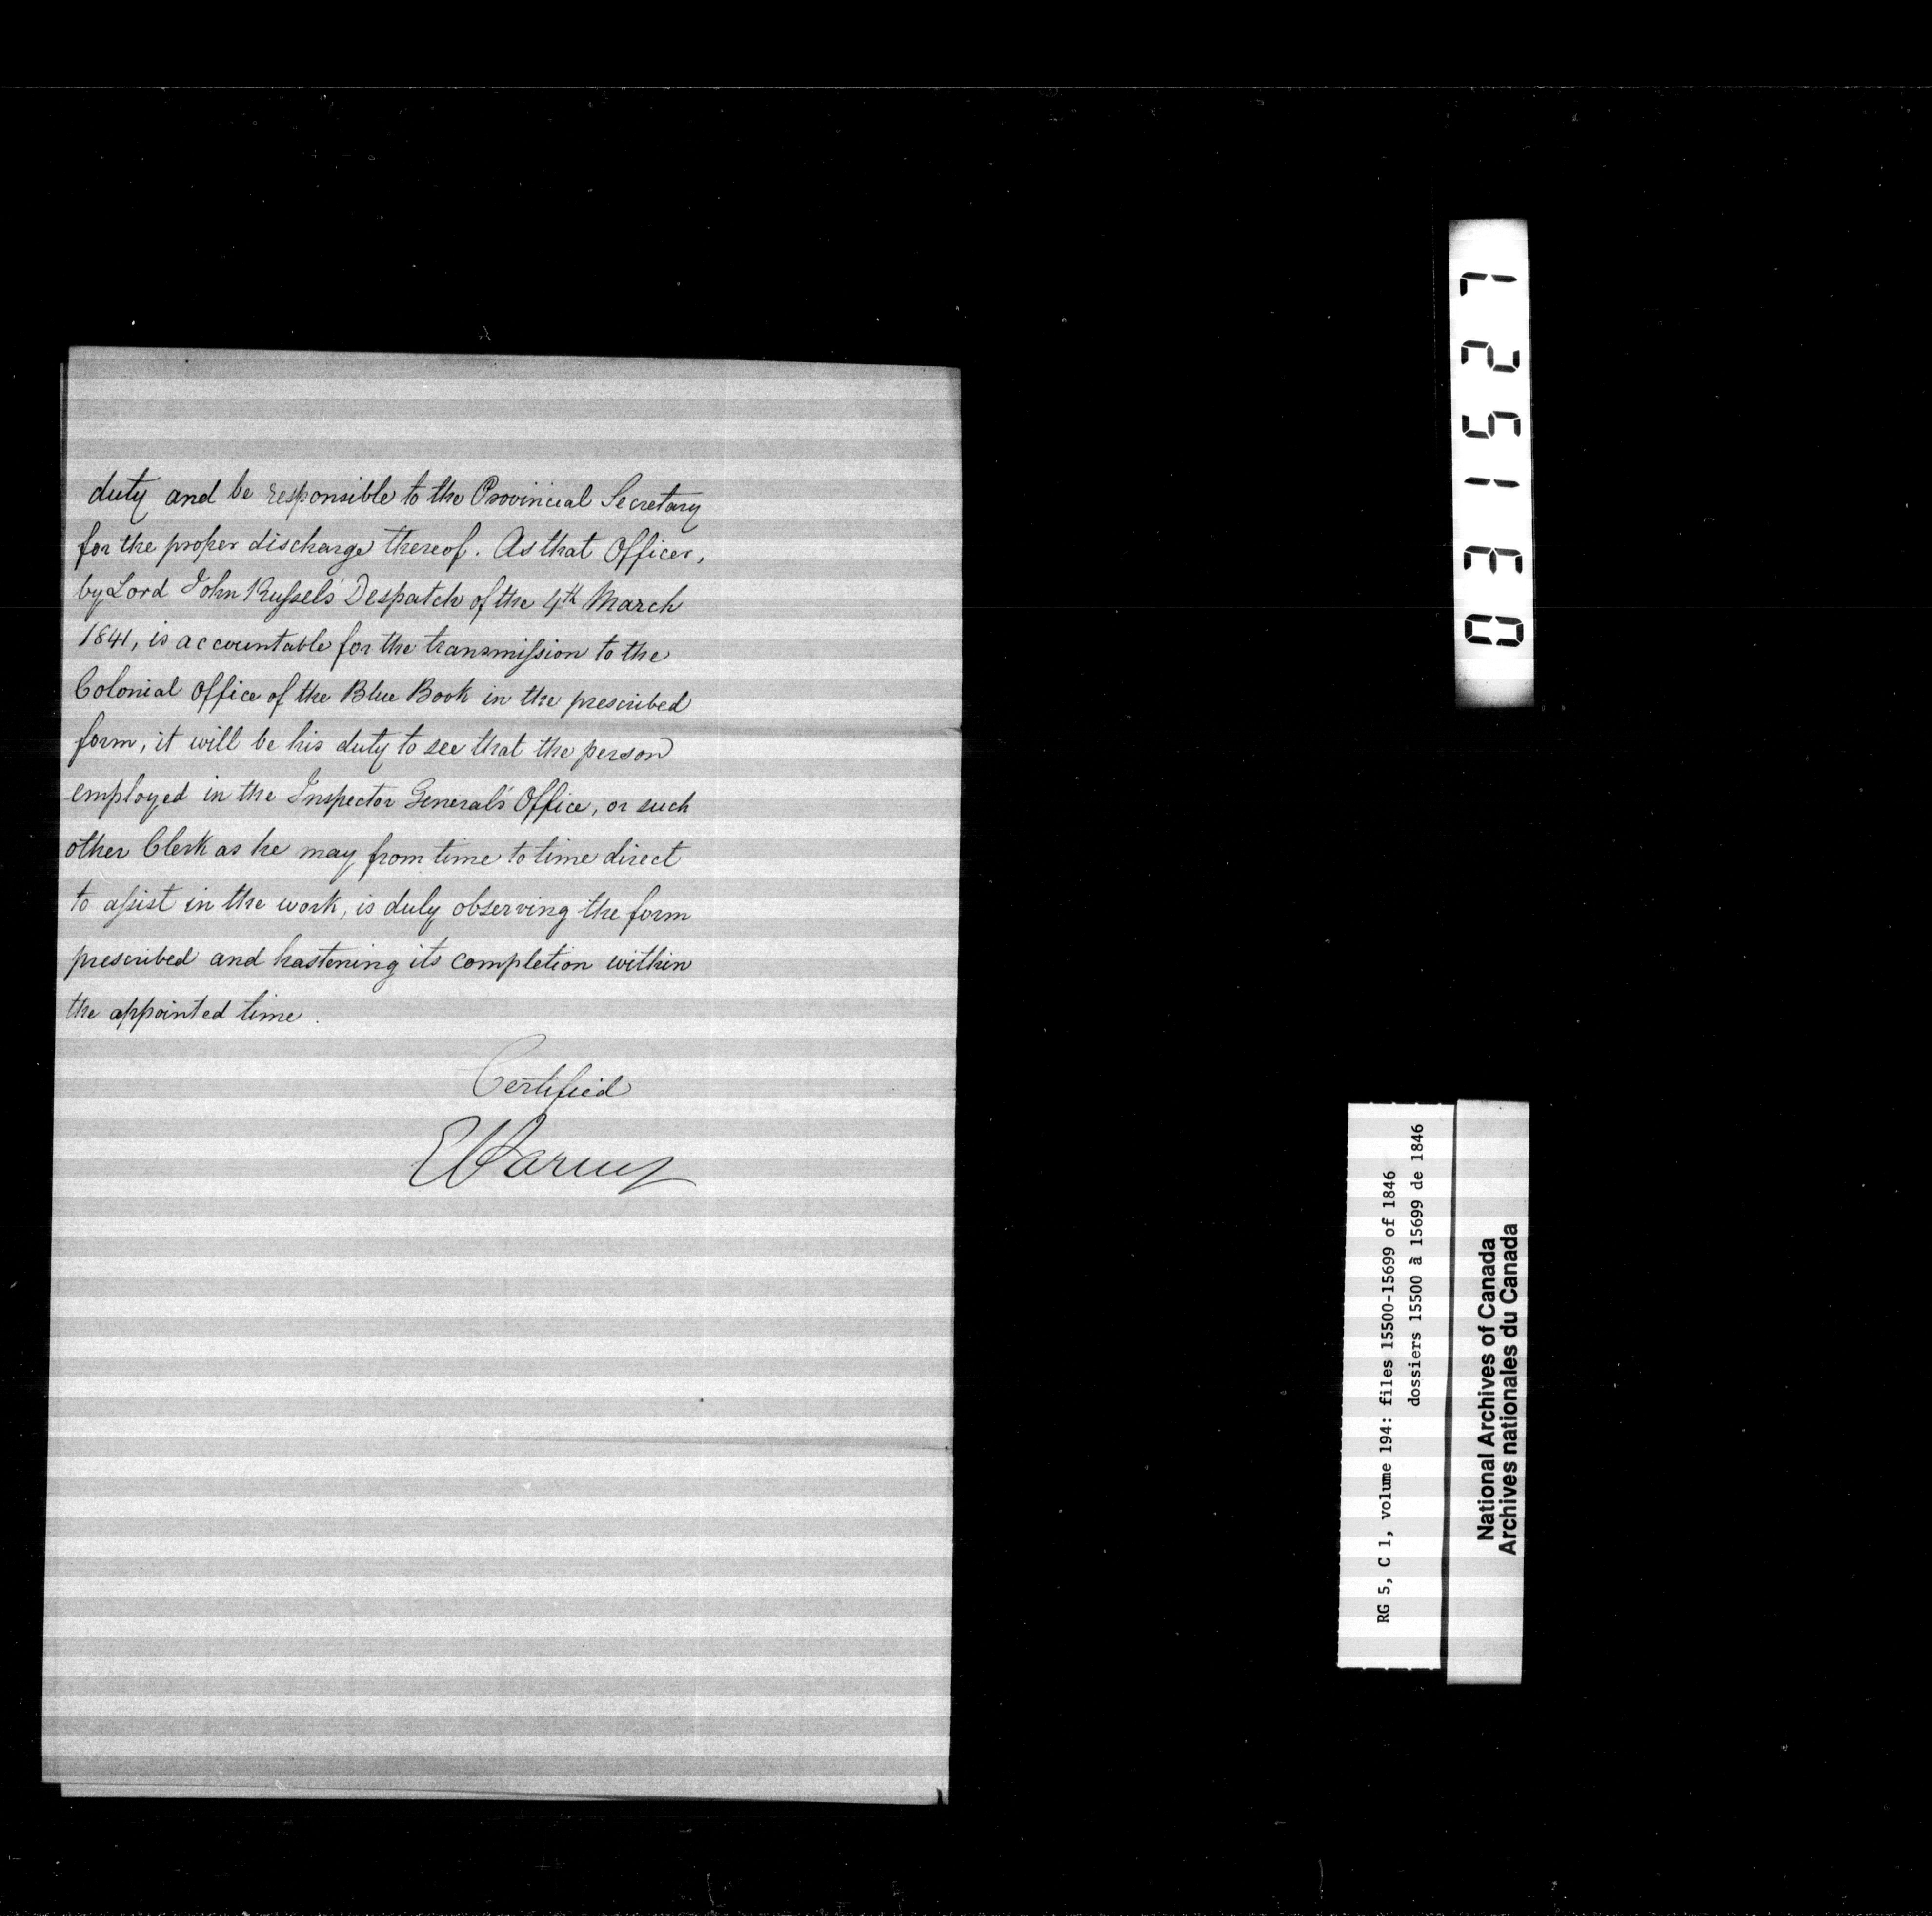 duty and be responsible to the Provincial Secretary
for the proper discharge thereof. As that Officer,
by Lord John Russel's Despatch of the 4th March
1841, is accountable for the transmission to the
Colonial Office of the Blue Book in the prescribed
form, it will be his duty to see that the person
employed in the Inspector General's Office, or such
other Clerk as he may from time to time direct
to assist in the work, is duly observing the form
prescribed and hastening its completion within
the appointed time.
Certified
031527
RG 5, C 1, volume 194: files 15500-15699 of 1846
dossiers 15500 à 15699 de 1846
National Archives of Canada
Archives nationales du Canada